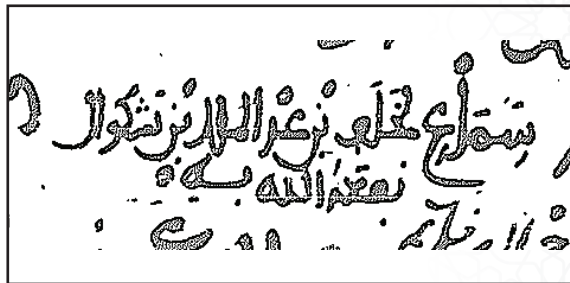 سماع لخلف بن عبد الملك بن بشكوال
نفعه الله به